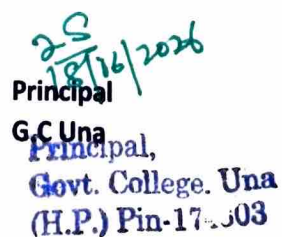 18/06/2026
Principal
G.C Una
Principal,
Govt. College. Una
(H.P.) Pin-17 03